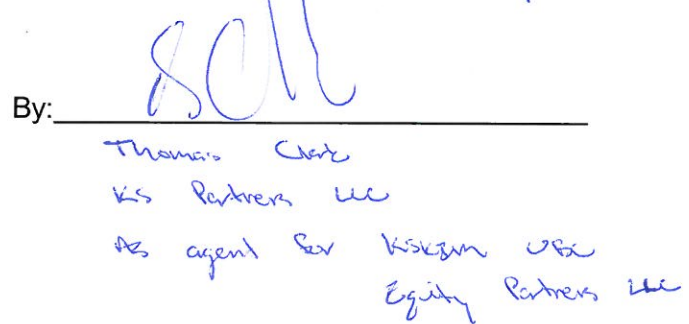 By:
Thomas Clark
KS Partners LLC
As agent for
Equity Partners LLC